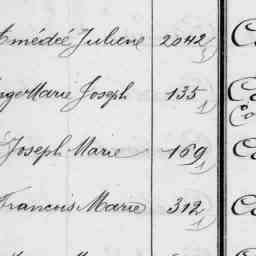 Amédéé Juliene 2042
Ange Marie Joseph 135
Joseph Marie 169
Francois Marie 312